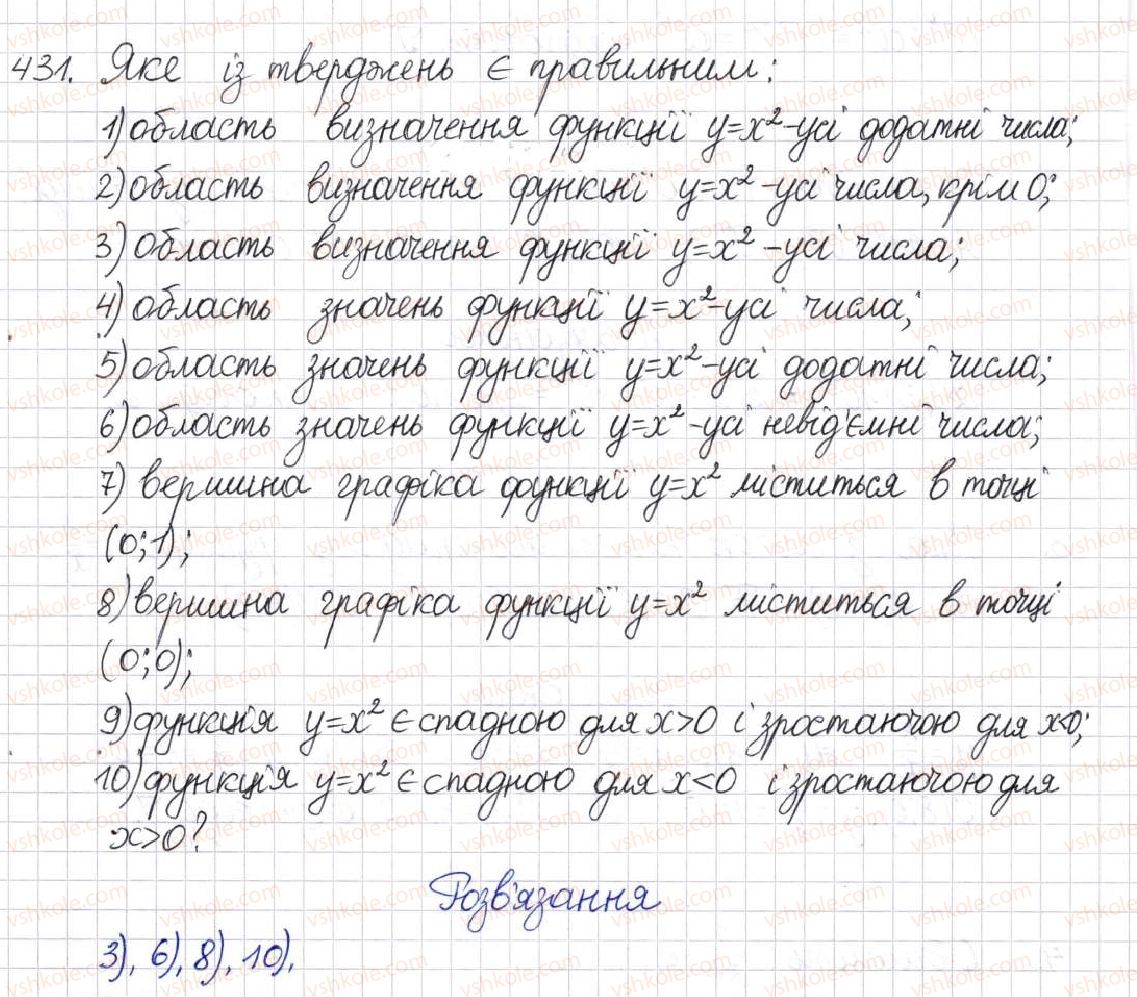 431. Яке із тверджень є правильним:
1) область визначення функції y=x²-усі додатні числа;
2) область визначення функції y=x²-усі числа, крім 0;
3) область визначення функції y=x²-усі числа;
4) область значень функції y=x²-усі числа;
5) область значень функції y=x²-усі додатні числа;
6) область значень функції y=x²-усі невід'ємні числа;
7) вершина графіка функції y=x² міститься в точці
(0;1);
8) вершина графіка функції y=x² міститься в точці
(0;0);
9) функція y=x² є спадною для x>0 і зростаючою для x<0;
10) функція y=x² є спадною для x<0 і зростаючою для
x>0?
Розв'язання
3), 6), 8), 10).